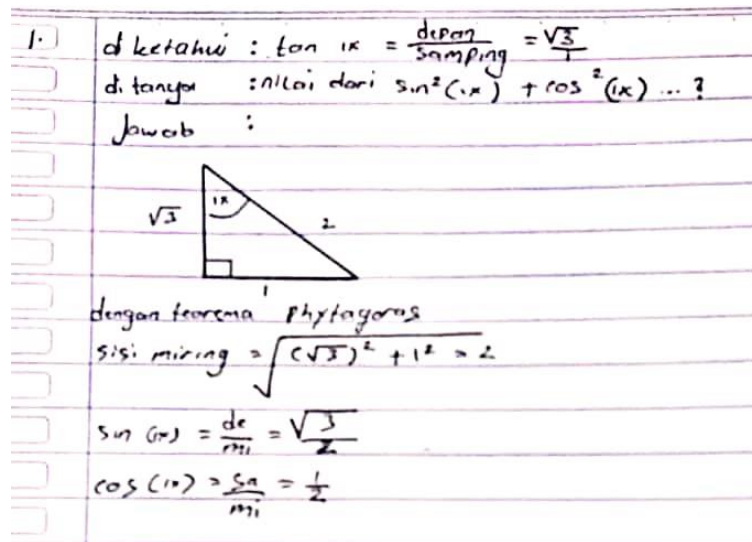 1. diketahui : tan 1x = depan/samping = √3/1
ditanya : nilai dari sin²(1x) + cos²(1x) ... ?
Jawab :
1x
√3
2
1
dengan teorema Phytagoras
sisi miring = √((√3)² + 1²) = 2
sin (1x) = de/mi = √3/2
cos (1x) = sa/mi = 1/2